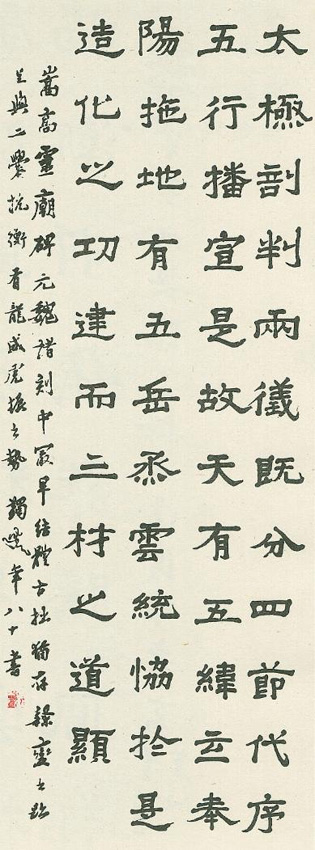 太極剖判兩儀既分四節代序
五行播宣是故天有五緯主奉
陽拖地有五岳烝雲統協於是
造化之功建而三材之道顯
嵩高靈廟碑元魏諸刻中冣早結體古拙猶存隸變之跡
與二爨抗衡有龍威虎振之勢 蠲叟年八十書